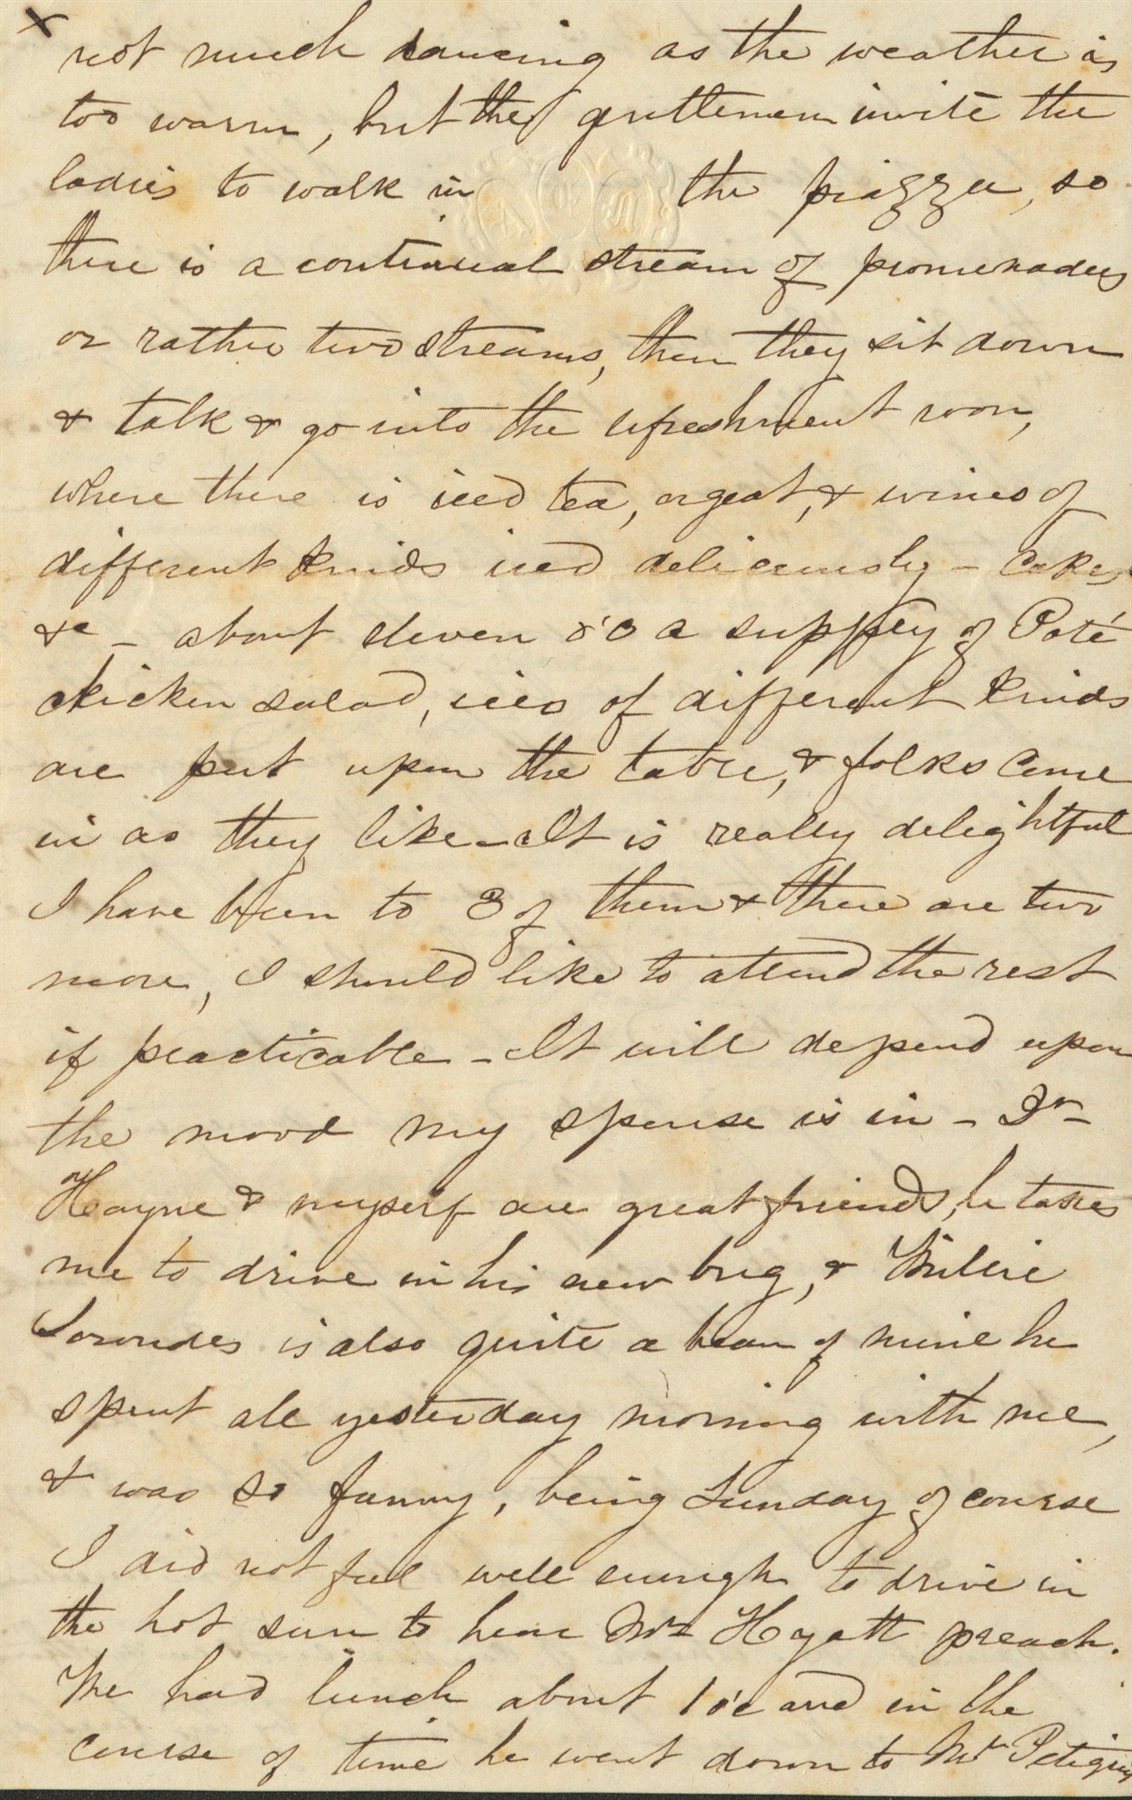 x
not much dancing as the weather is
too warm, but the gentlemen invite the
ladies to walk in the piazza, so
there is a continual stream of promenaders
or rather two streams, then they sit down
& talk & go into the refreshment room,
where there is iced tea, orgeat, & wines of
different kinds iced deliciously - cakes
&c - about eleven o'c a supply of Paté
chicken salad, ices of different kinds
are put upon the table, & folks come
in as they like - It is really delightful
I have been to 3 of them & there are two
more, I should like to attend the rest
if practicable - It will depend upon
the mood my spouse is in - Dr
Hayne & myself are great friends, he takes
me to drive in his new bug, & Willie
Lowndes is also quite a beau of mine he
spent all yesterday morning with me,
& was so funny, being Sunday of course
I did not feel well enough to drive in
the hot sun to hear Mr Hyatt preach.
We had lunch about 1 o'c and in the
course of time he went down to Mr Petigru